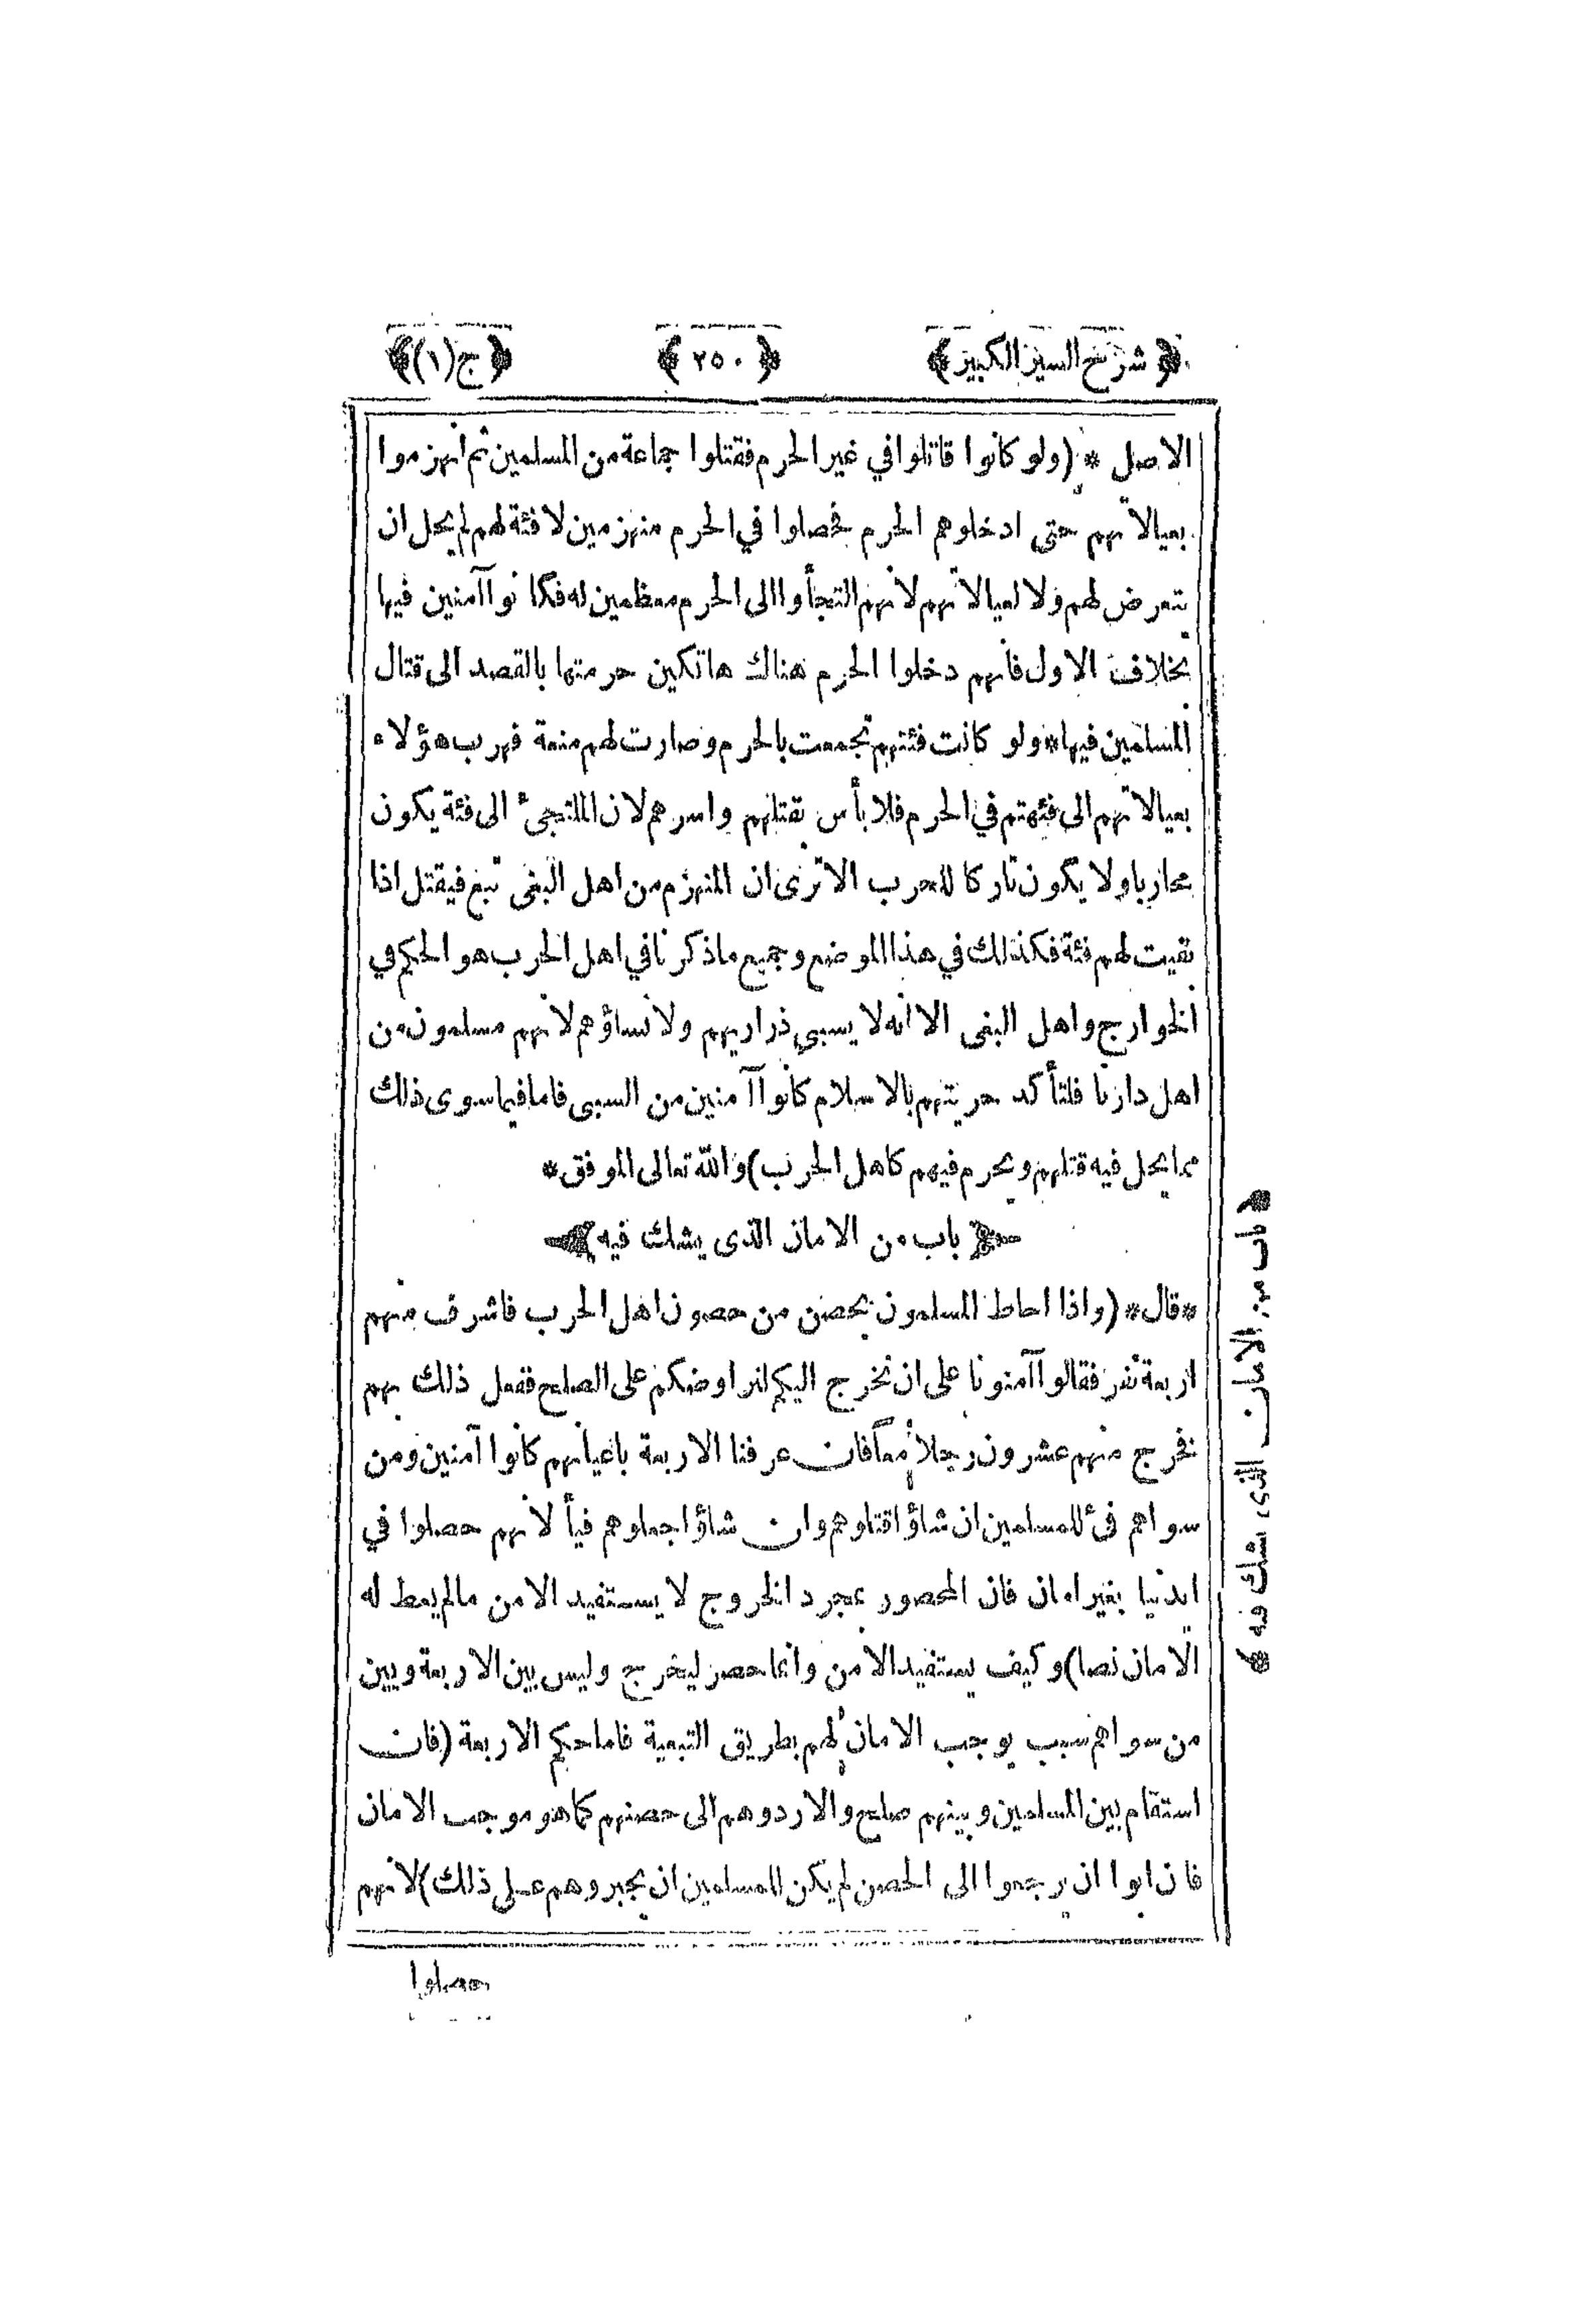 ﴿ شرح السير الكبير ﴾ ﴿ ٢٥٠ ﴾ ﴿ ج (١) ﴾
الاصل * (ولو كانوا قاتلوا في غير الحرم فقتلوا جماعة من المسلمين ثم انهزموا
بعيالاتهم حتى ادخلوهم الحرم فحصلوا في الحرم منهزمين لا فئة لهم لم يحل ان
يتعرض لهم ولا لعيالاتهم لانهم التجأوا الى الحرم معظمين له فكانوا آمنين فيها
بخلاف الاول فانهم دخلوا الحرم هناك هاتكين حرمتها بالقصد الى قتال
المسلمين فيها * ولو كانت فئتهم تجمعت بالحرم وصارت لهم منعة فهرب هؤلاء
بعيالاتهم الى فئهتم في الحرم فلا بأس بقتلهم واسرهم لان الملتجئ الى فئة يكون
محاربا ولا يكون تاركا للحرب الا ترى ان المنهزم من اهل البغى يتبع فيقتل اذا
بقيت لهم فئة فكذلك في هذا الموضع وجميع ما ذكرنا في اهل الحرب هو الحكم في
الخوارج واهل البغى الا انه لا يسبي ذراريهم ولا نساؤهم لانهم مسلمون من
اهل دارنا فلتأكد حريتهم بالاسلام كانوا آمنين من السبى فاما فيما سوى ذلك
مما يحل فيه قتلهم ويحرم فيهم كاهل الحرب) والله تعالى الموفق *
﴿ باب من الامان الذى يشك فيه ﴾
* قال * (واذا احاط المسلمون بحصن من حصون اهل الحرب فاشرف منهم
اربعة نفر فقالوا آمنونا على ان نخرج اليكم لنراوضكم على الصلح ففعل ذلك بهم
فخرج منهم عشرون رجلاً معاً فان عرفنا الاربعة باعيانهم كانوا آمنين ومن
سواهم فئ للمسلمين ان شاؤا قتلوهم وان شاؤا جعلوهم فيأ لانهم حصلوا في
ايدنيا بغير امان فان المحصور بمجرد الخروج لا يستفيد الامن مالم يعط له
الامان نصا) وكيف يستفيد الامن وانما حصر ليخرج وليس بين الاربعة وبين
من سواهم سبب يوجب الامان لهم بطريق التبعية فاما حكم الاربعة (فان
استقام بين المسلمين وبينهم صلح والا ردوهم الى حصنهم كما هو موجب الامان
فان ابوا ان يرجعوا الى الحصن لم يكن للمسلمين ان يجبروهم على ذلك) لانهم
حصلوا
﴿ باب من الامان الذى يشك فيه ﴾